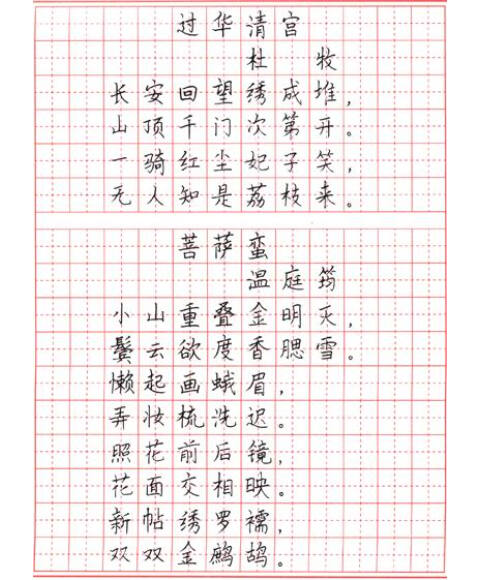 过华清宫
杜牧
长安回望绣成堆，
山顶千门次第开。
一骑红尘妃子笑，
无人知是荔枝来。
菩萨蛮
温庭筠
小山重叠金明灭，
鬓云欲度香腮雪。
懒起画蛾眉，
弄妆梳洗迟。
照花前后镜，
花面交相映。
新帖绣罗襦，
双双金鹧鸪。